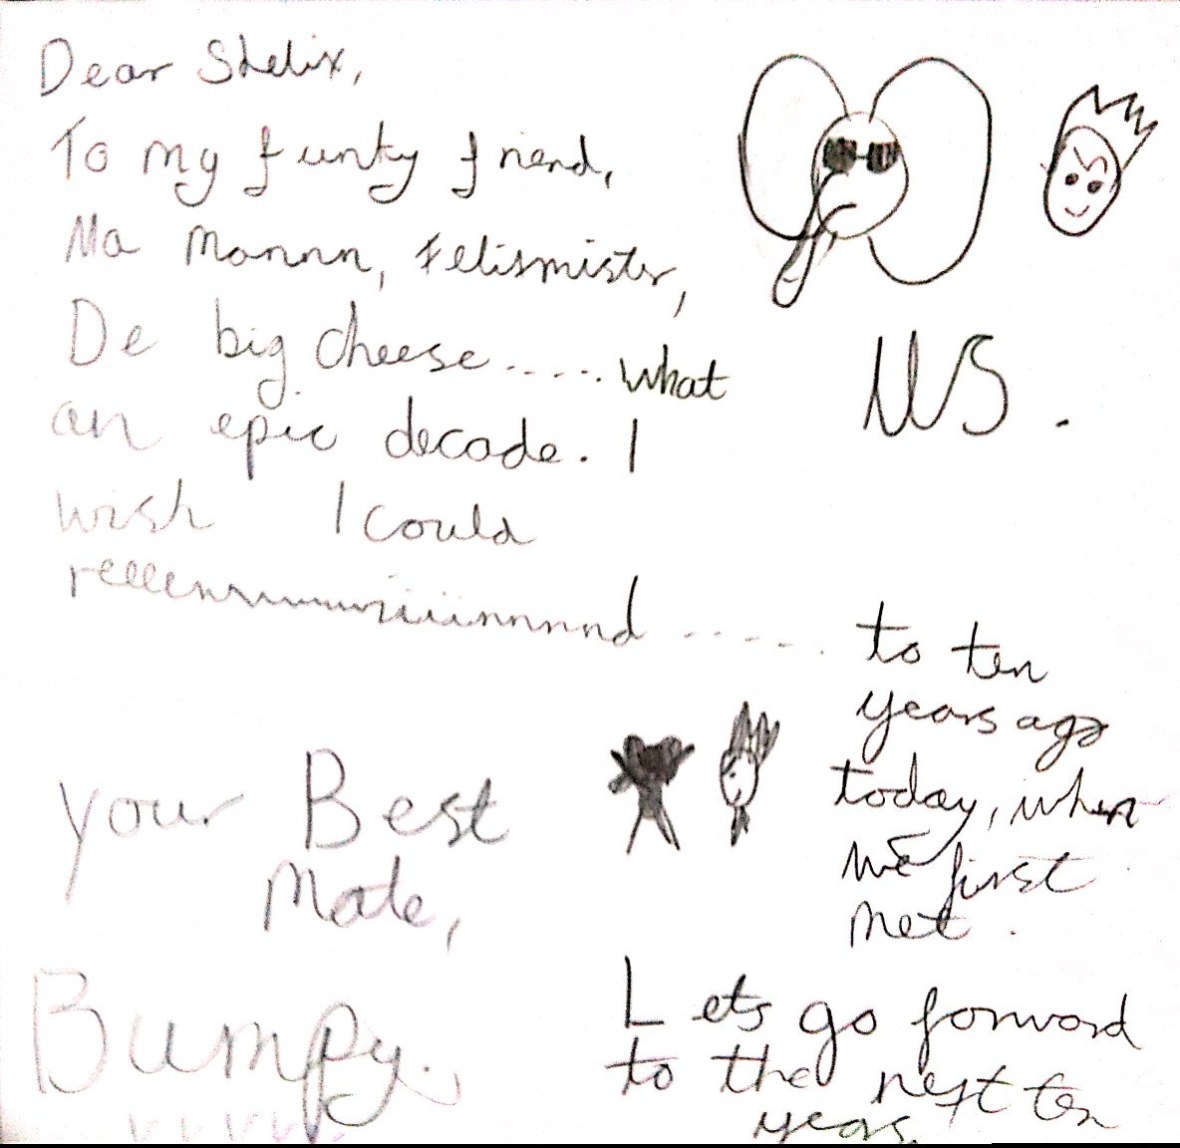 Dear Shelix,
To my funky friend,
Ma Mannnn, Felismister,
De big cheese..... what
an epic decade. I
wish I could
to ten
years ago
today, when
we first
met.
Lets go forward
to the next ten
years.
your Best
Mate,
Bumpy.
US.